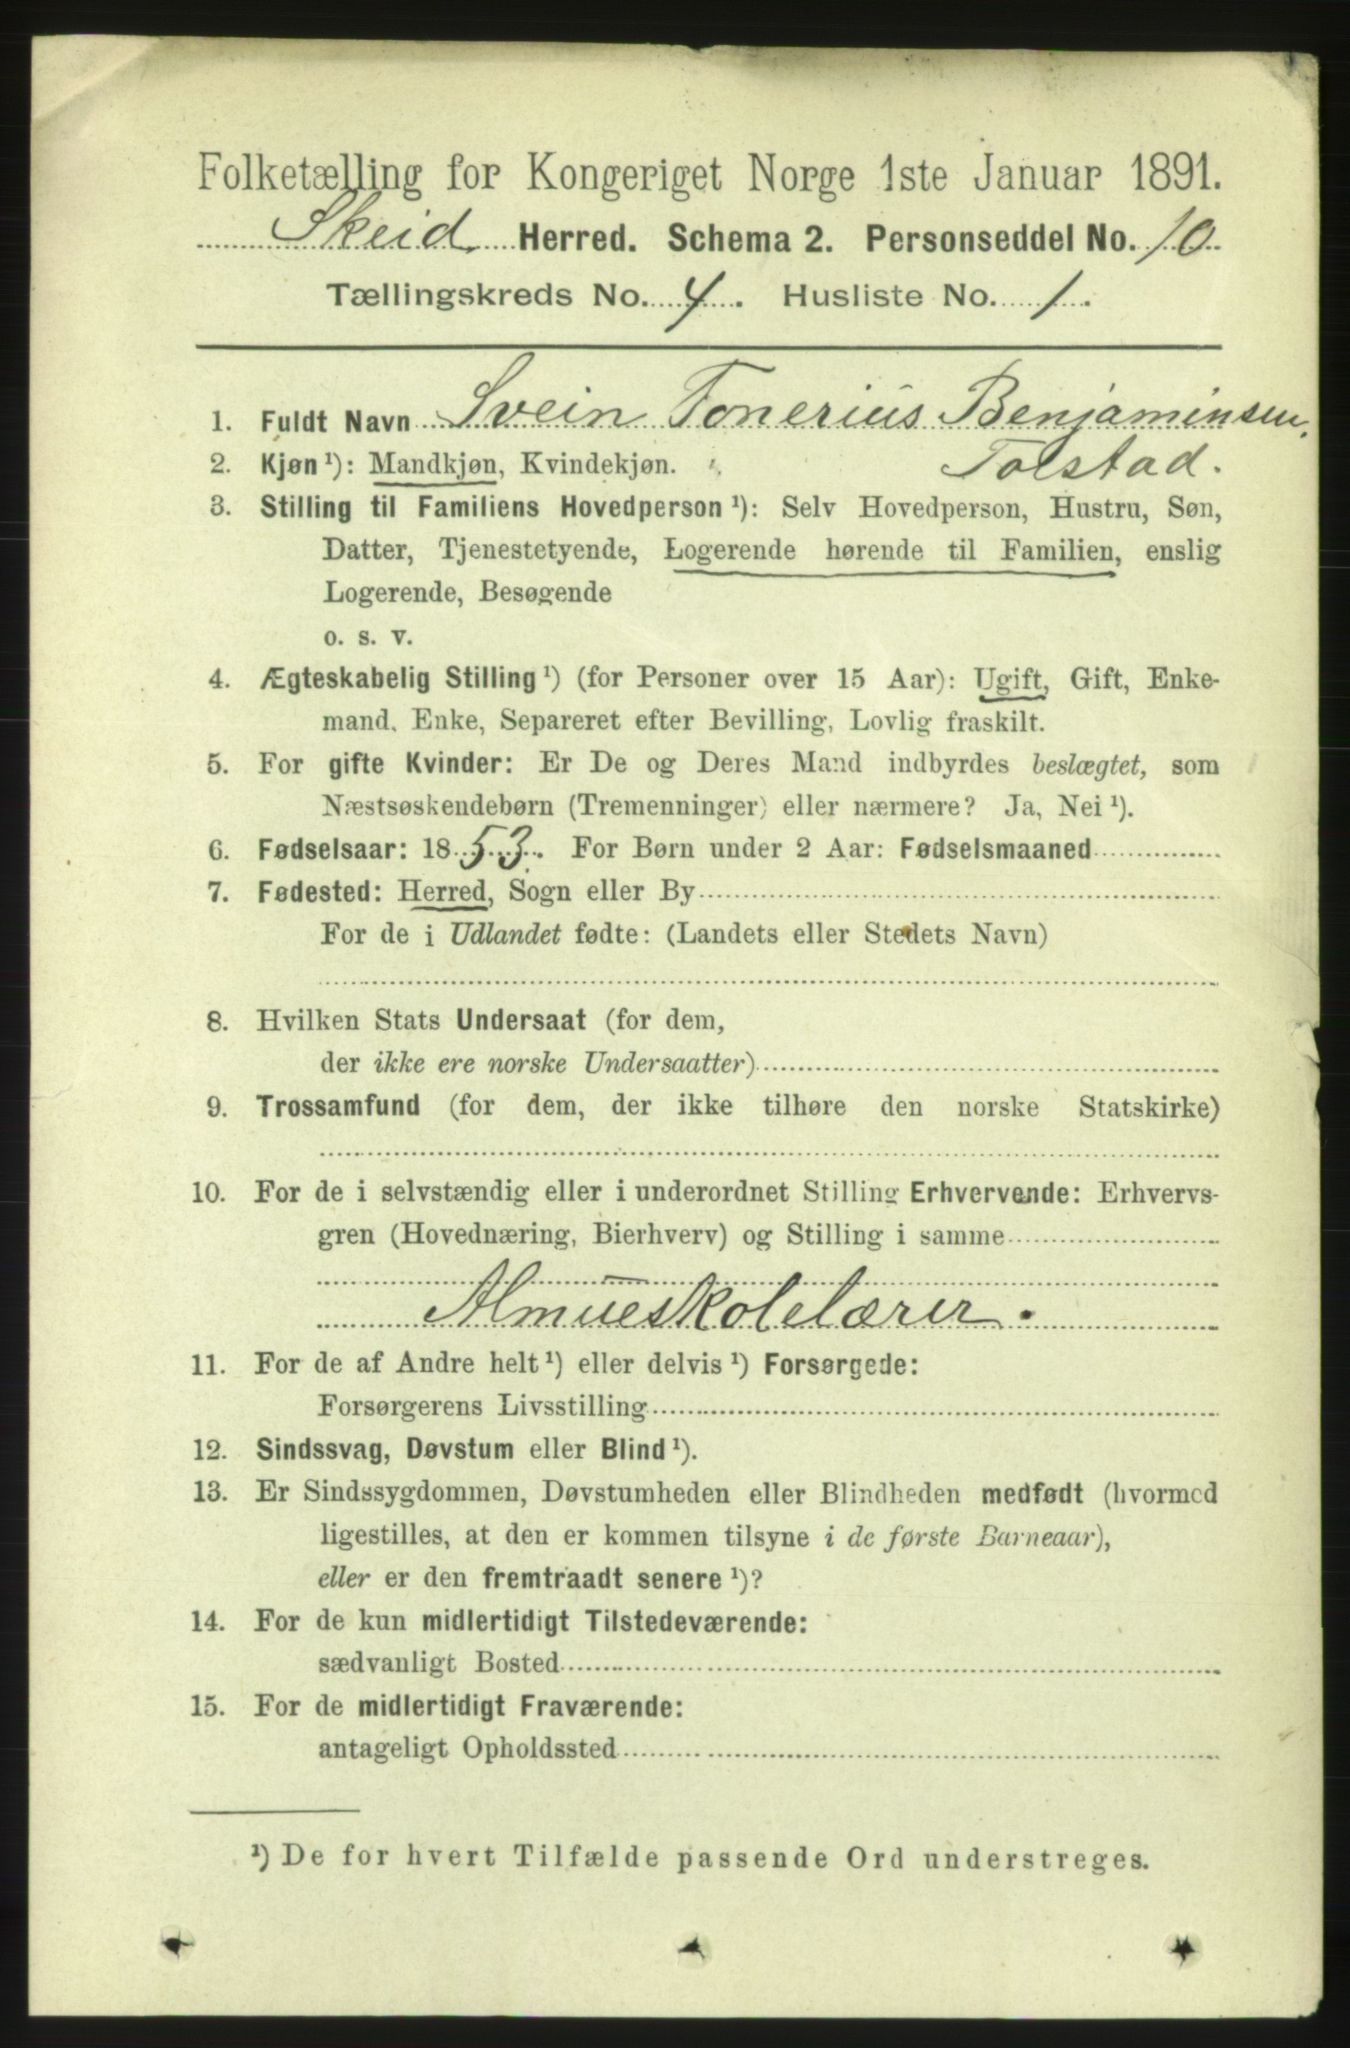 Folketælling for Kongeriget Norge 1ste Januar 1891.
Skeid Herred. Schema 2. Personseddel No. 10
Tællingskreds No. 4. Husliste No. 1.
1. Fuldt Navn Svein Tonerius Benjaminsen,
2. Kjøn ¹): Mandkjøn, Kvindekjøn. Tolstad.
3. Stilling til Familiens Hovedperson ¹): Selv Hovedperson, Hustru, Søn,
Datter, Tjenestetyende, Logerende hørende til Familien, enslig
Logerende, Besøgende
o. s. v.
4. Ægteskabelig Stilling ¹) (for Personer over 15 Aar): Ugift, Gift, Enke-
mand, Enke, Separeret efter Bevilling, Lovlig fraskilt.
5. For gifte Kvinder: Er De og Deres Mand indbyrdes beslægtet, som
Næstsøskendebørn (Tremenninger) eller nærmere? Ja, Nei ¹).
6. Fødselsaar: 1853. For Børn under 2 Aar: Fødselsmaaned
7. Fødested: Herred, Sogn eller By
For de i Udlandet fødte: (Landets eller Stedets Navn)
8. Hvilken Stats Undersaat (for dem,
der ikke ere norske Undersaatter)
9. Trossamfund (for dem, der ikke tilhøre den norske Statskirke)
10. For de i selvstændig eller i underordnet Stilling Erhvervende: Erhvervs-
gren (Hovednæring, Bierhverv) og Stilling i samme
Almueskolelærer.
11. For de af Andre helt ¹) eller delvis ¹) Forsørgede:
Forsørgerens Livsstilling
12. Sindssvag, Døvstum eller Blind ¹).
13. Er Sindssygdommen, Døvstumheden eller Blindheden medfødt (hvormed
ligestilles, at den er kommen tilsyne i de første Barneaar),
eller er den fremtraadt senere ¹)?
14. For de kun midlertidigt Tilstedeværende:
sædvanligt Bosted
15. For de midlertidigt Fraværende:
antageligt Opholdssted
¹) De for hvert Tilfælde passende Ord understreges.